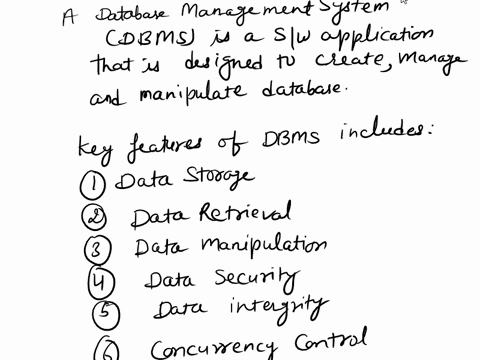 A Database Management System
(DBMS) is a S/w application
that is designed to create, Manage
and manipulate database.
Key features of DBMS includes:
1 Data Storage
2 Data Retrieval
3 Data Manipulation
4 Data Security
5 Data intergrity
6 Concurrency Control